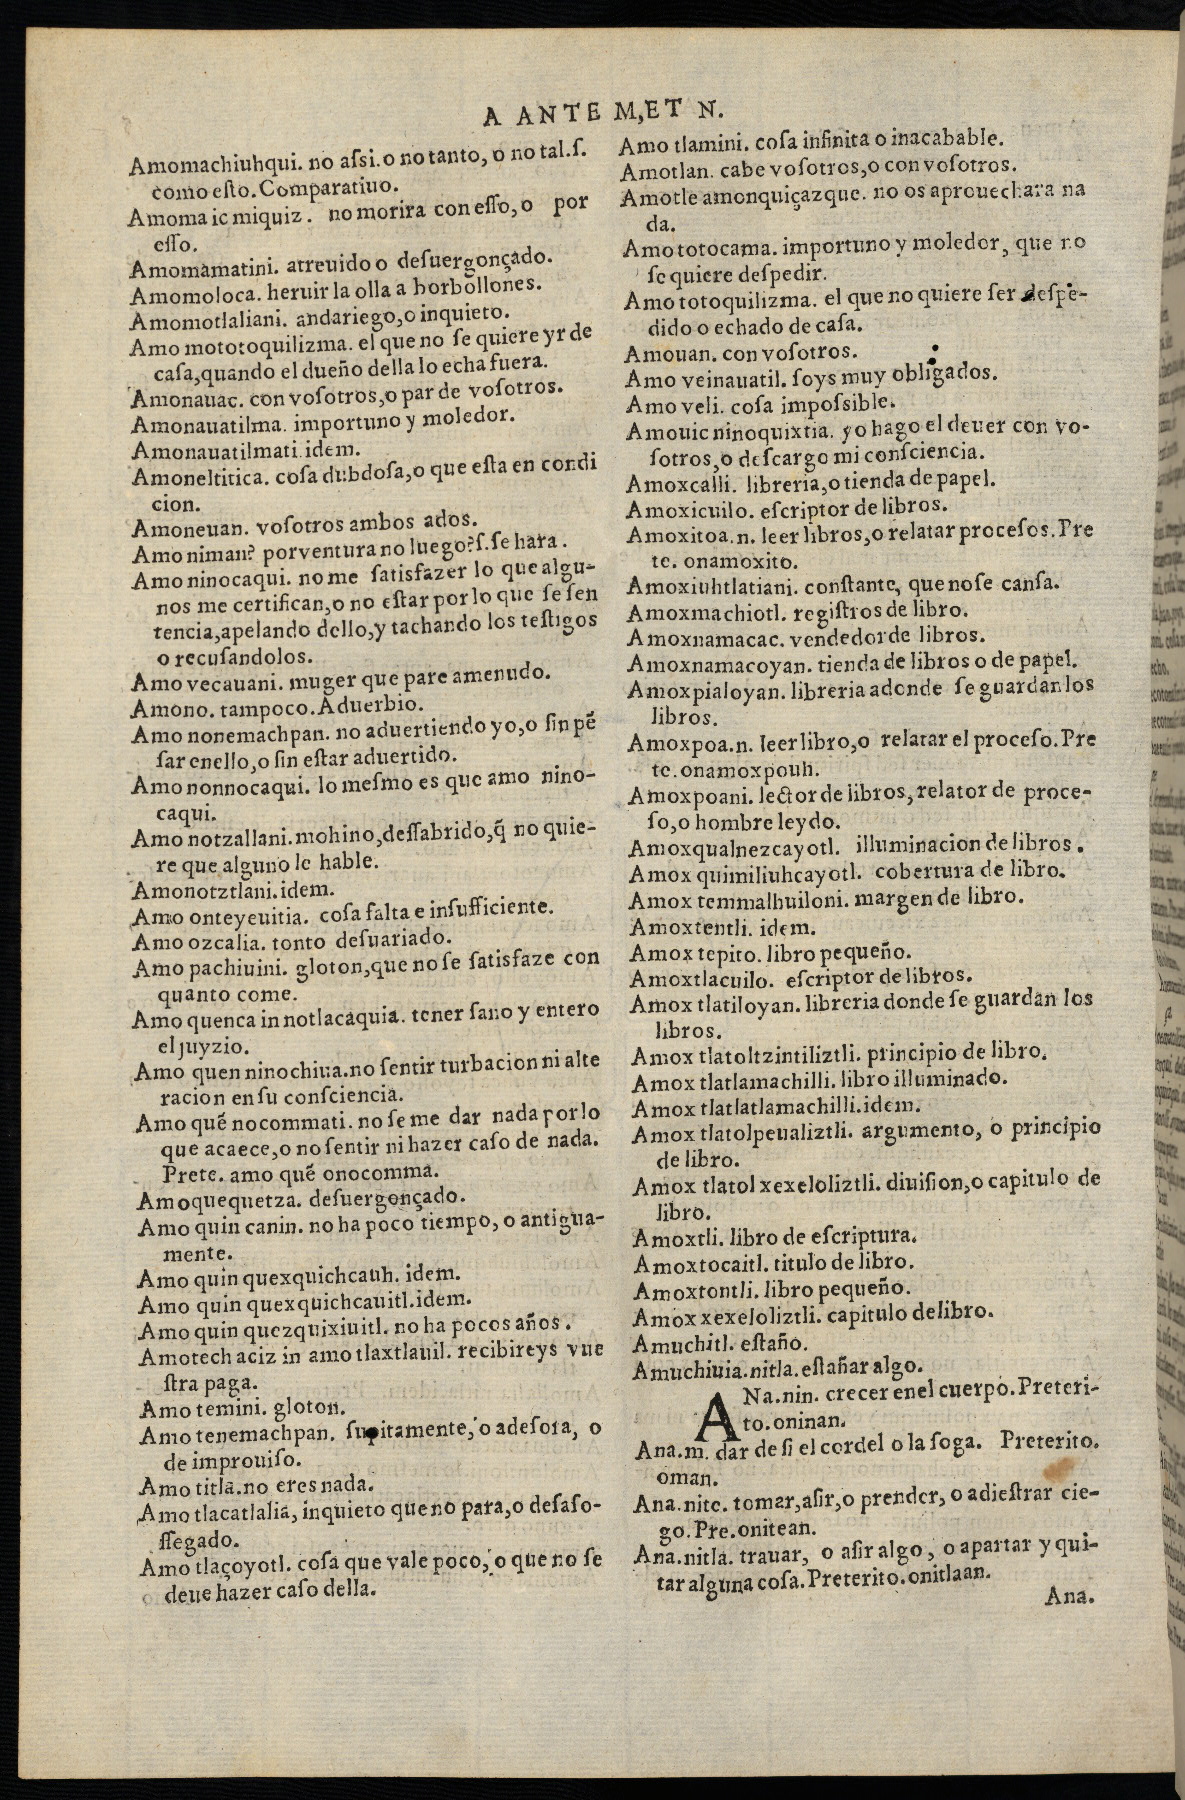 A ANTE M,ET N.
Amomachiuhqui. no aſsi. o no tanto, o no tal.ſ.
como eſto. Comparatiuo.
Amoma ic miquiz. no morira con eſſo, o por
eſſo.
Amomamatini. atreuido o deſuergonçado.
Amomoloca. heruir la olla a borbollones.
Amomotlaliani. andariego, o inquieto.
Amo mototoquilizma. el que no ſe quiere yr de
caſa, quando el dueño della lo echa fuera.
Amonauac. con voſotros, o par de voſotros.
Amonauatilma. importuno y moledor.
Amonauatilmati. idem.
Amoneltitica. coſa dubdoſa, o que eſta en condi
cion.
Amoneuan. voſotros ambos ados.
Amo niman? por ventura no luego? ſ. ſe hara.
Amo ninocaqui. no me ſatisfazer lo que algu-
nos me certifican, o no eſtar por lo que ſe ſen
tencia, apelando dello, y tachando los teſtigos
o recuſandolos.
Amo vecauani. muger que pare amenudo.
Amono. tampoco. Aduerbio.
Amo nonemachpan. no aduertiendo yo, o ſin pẽ
ſar enello, o ſin eſtar aduertido.
Amo nonnocaqui. lo meſmo es que amo nino-
caqui.
Amo notzallani. mohino, deſſabrido, q̃ no quie-
re que alguno le hable.
Amonotztlani. idem.
Amo onteyeuitia. coſa falta e inſufficiente.
Amo ozcalia. tonto deſuariado.
Amo pachiuini. gloton, que no ſe ſatisfaze con
quanto come.
Amo quenca in notlacaquia. tener ſano y entero
el juyzio.
Amo quen ninochiua. no ſentir turbacion ni alte
racion en ſu conſciencia.
Amo quẽ nocommati. no ſe me dar nada por lo
que acaece, o no ſentir ni hazer caſo de nada.
Prete. amo quẽ onocomma.
Amoquequetza. deſuergonçado.
Amo quin canin. no ha poco tiempo, o antigua-
mente.
Amo quin quexquichcauh. idem.
Amo quin quexquichcauitl. idem.
Amo quin quezquixiuitl. no ha pocos años.
Amotech aciz in amo tlaxtlauil. recibireys vue
ſtra paga.
Amo temini. gloton.
Amo tenemachpan. ſupitamente, o adeſora, o
de improuiſo.
Amo titlã. no eres nada.
Amo tlacatlaliã, inquieto que no para, o deſaſo-
ſſegado.
Amo tlaçoyotl. coſa que vale poco, o que no ſe
deue hazer caſo della.
Amo tlamini. coſa infinita o inacabable.
Amotlan. cabe voſotros, o con voſotros.
Amotle amonquiçazque. no os aprouechara na
da.
Amo totocama. importuno y moledor, que no
ſe quiere deſpedir.
Amo totoquilizma. el que no quiere ſer deſpe-
dido o echado de caſa.
Amouan. con voſotros.
Amo veinauatil. ſoys muy obligados.
Amo veli. coſa impoſsible.
Amouic ninoquixtia. yo hago el deuer con vo-
ſotros, o deſcargo mi conſciencia.
Amoxcalli. libreria, o tienda de papel.
Amoxicuilo. eſcriptor de libros.
Amoxitoa. n. leer libros, o relatar proceſos. Pre
te. onamoxito.
Amoxiuhtlatiani. conſtante, que no ſe canſa.
Amoxmachiotl. regiſtros de libro.
Amoxnamacac. vendedor de libros.
Amoxnamacoyan. tienda de libros o de papel.
Amoxpialoyan. libreria adonde ſe guardan los
libros.
Amoxpoa. n. leer libro, o relatar el proceſo. Pre
te. onamoxpouh.
Amoxpoani. lector de libros, relator de proce-
ſo, o hombre leydo.
Amoxqualnezcayotl. illuminacion de libros.
Amox quimiliuhcayotl. cobertura de libro.
Amox temmalhuiloni. margen de libro.
Amoxtentli. idem.
Amox tepito. libro pequeño.
Amoxtlacuilo. eſcriptor de libros.
Amox tlatiloyan. libreria donde ſe guardan los
libros.
Amox tlatoltzintiliztli. principio de libro.
Amox tlatlamachilli. libro illuminado.
Amox tlatlatlamachilli. idem.
Amox tlatolpeualiztli. argumento, o principio
de libro.
Amox tlatol xexeloliztli. diuiſion, o capitulo de
libro.
Amoxtli. libro de eſcriptura.
Amoxtocaitl. titulo de libro.
Amoxtontli. libro pequeño.
Amox xexeloliztli. capitulo de libro.
Amuchitl. eſtaño.
Amuchiuia. nitla. eſtañar algo.
ANa. nin. crecer enel cuerpo. Preteri-
to. oninan.
Ana. m. dar de ſi el cordel o la ſoga. Preterito.
oman.
Ana. nite. tomar, aſir, o prender, o adieſtrar cie-
go. Pre. onitean.
Ana. nitla. trauar, o aſir algo, o apartar y qui-
tar alguna coſa. Preterito. onitlaan.
Ana.